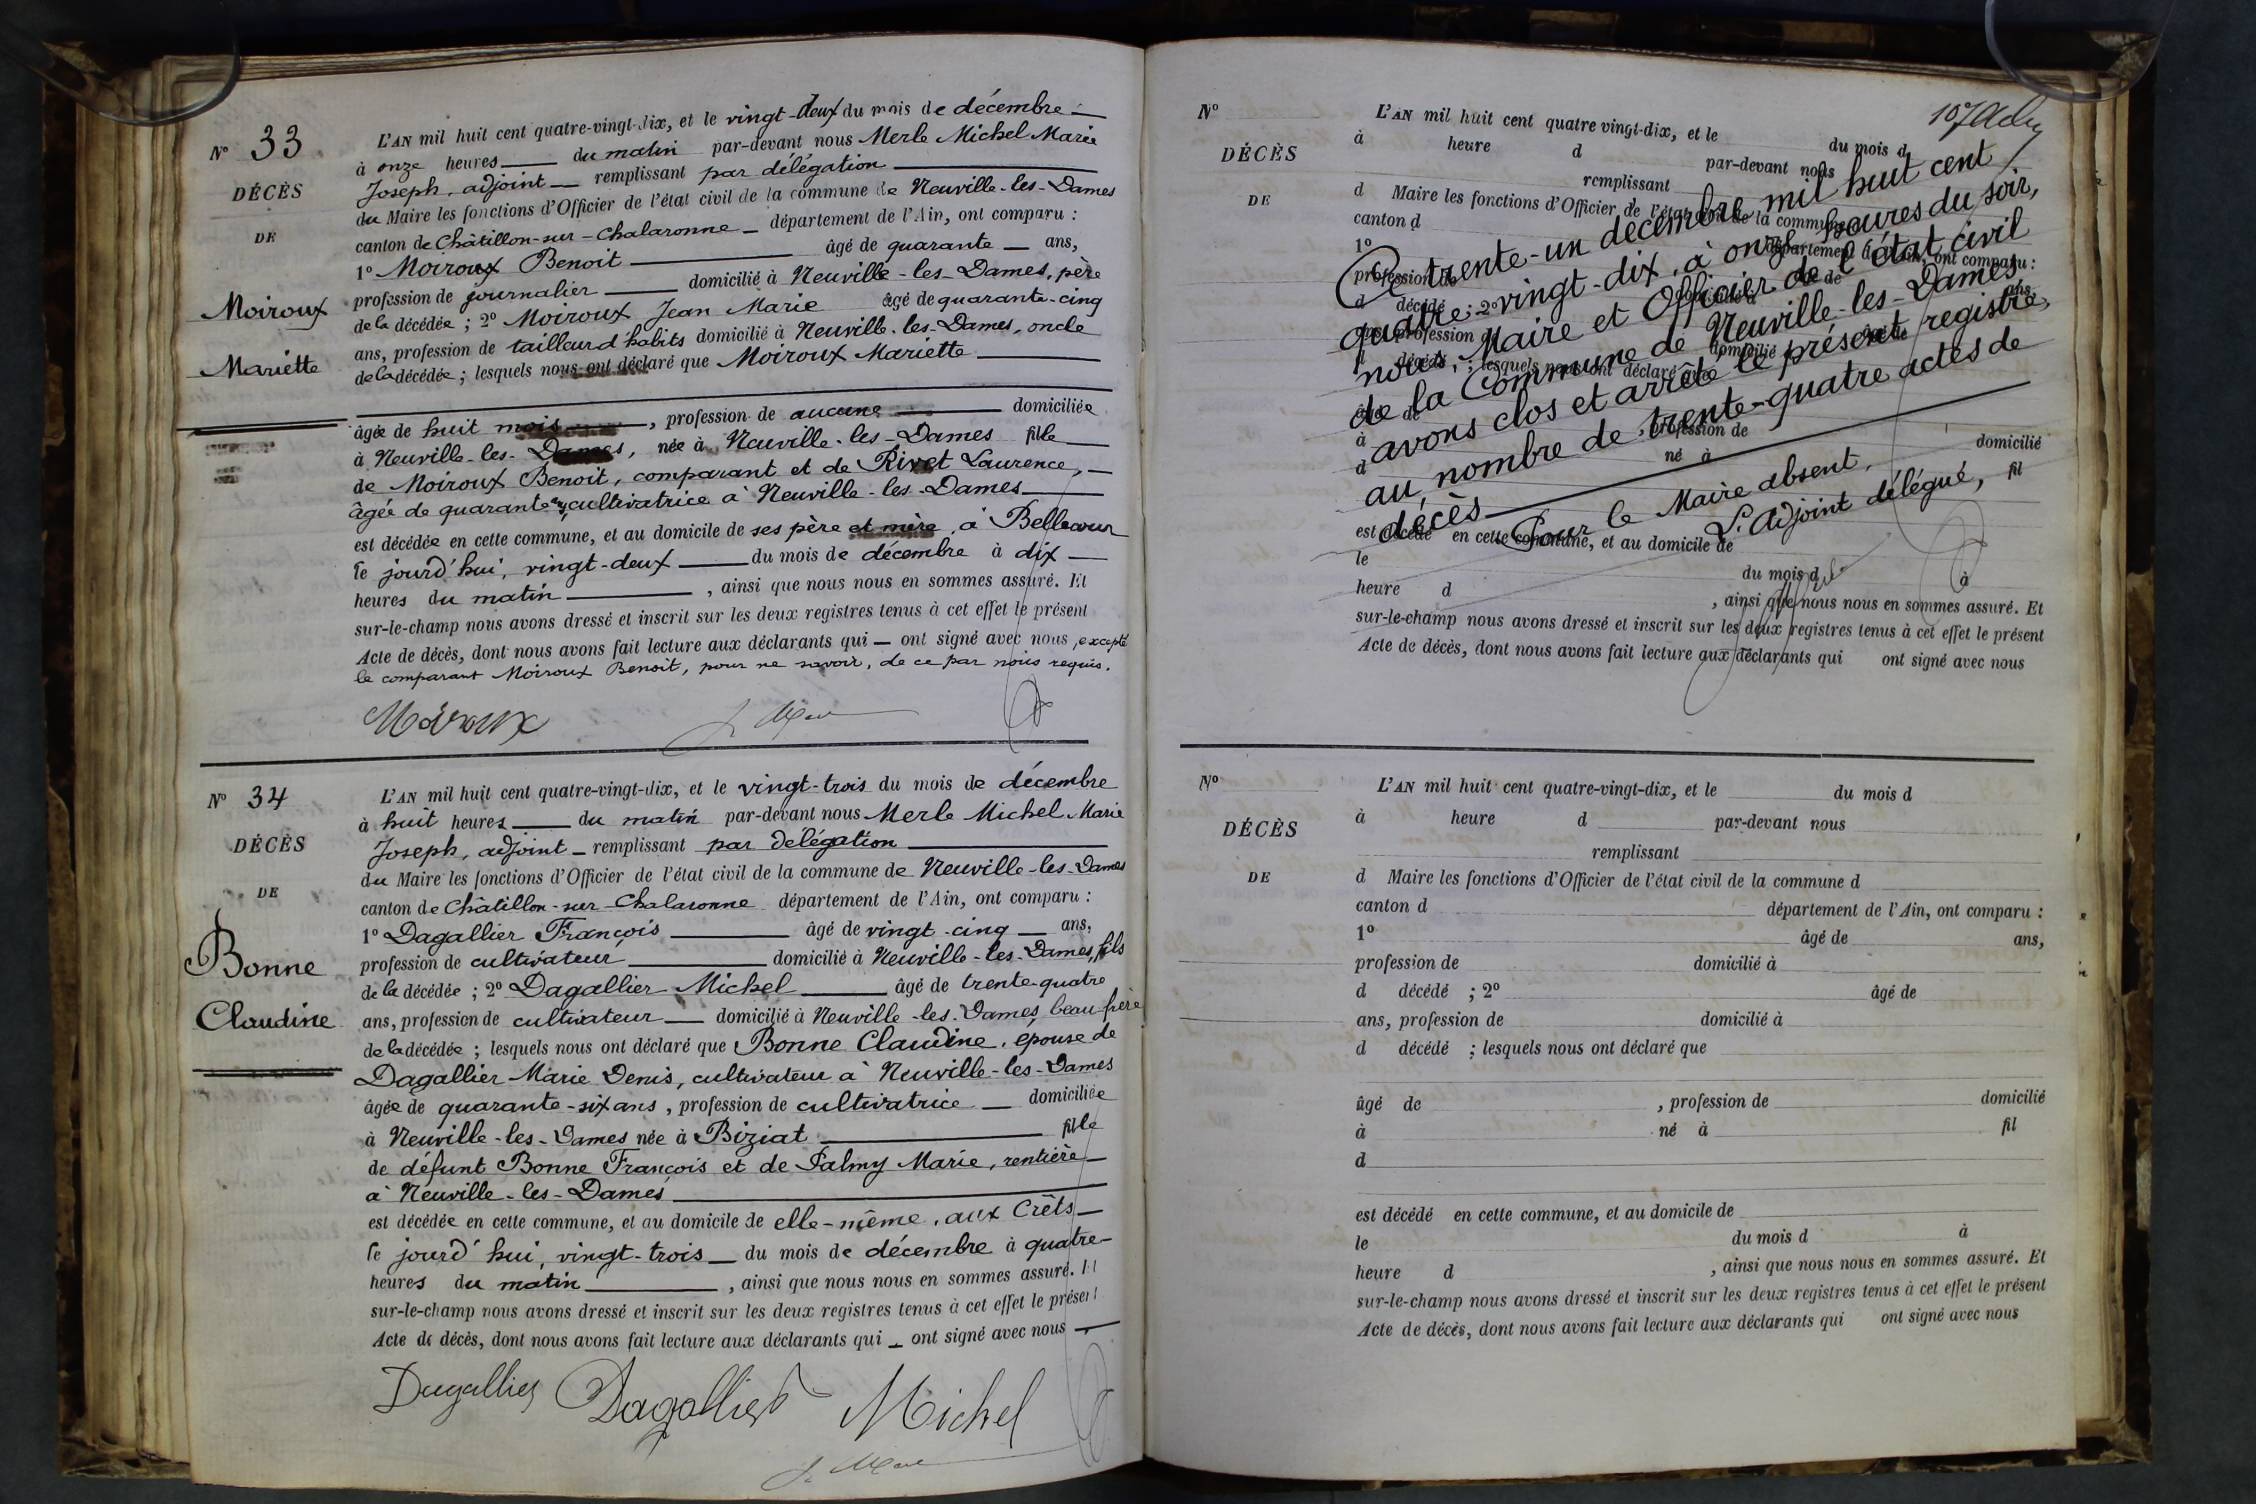 N° 33
DÉCÈS
DE
Moiroux
Mariette
L'AN mil huit cent quatre-vingt-dix, et le vingt-deux du mois de décembre
à onze heures du matin par-devant nous Merle Michel Marie
Joseph, adjoint remplissant par délégation
du Maire les fonctions d'Officier de l'état civil de la commune de Neuville-les-Dames
canton de Châtillon-sur-Chalaronne département de l'Ain, ont comparu :
1° Moiroux Benoit âgé de quarante ans,
profession de journalier domicilié à Neuville-les-Dames, père
de la décédée ; 2° Moiroux Jean Marie âgé de quarante-cinq
ans, profession de tailleur d'habits domicilié à Neuville-les-Dames, oncle
de la décédée ; lesquels nous ont déclaré que Moiroux Mariette
âgée de huit mois, profession de aucune domiciliée
à Neuville-les-Dames, née à Neuville-les-Dames fille
de Moiroux Benoit, comparant et de Rivet Laurence,
âgée de quarante ans, cultivatrice à Neuville-les-Dames
est décédée en cette commune, et au domicile de ses père et mère, à Bellecour
le jourd'hui, vingt-deux du mois de décembre à dix
heures du matin, ainsi que nous nous en sommes assuré. Et
sur-le-champ nous avons dressé et inscrit sur les deux registres tenus à cet effet le présent
Acte de décès, dont nous avons fait lecture aux déclarants qui ont signé avec nous, excepté
le comparant Moiroux Benoit, pour ne savoir, de ce par nous requis.
Moiroux
N° 34
DÉCÈS
DE
Bonne
Claudine
L'AN mil huit cent quatre-vingt-dix, et le vingt-trois du mois de décembre
à huit heures du matin par-devant nous Merle Michel Marie
Joseph, adjoint remplissant par délégation
du Maire les fonctions d'Officier de l'état civil de la commune de Neuville-les-Dames
canton de Châtillon-sur-Chalaronne département de l'Ain, ont comparu :
1° Dagallier François âgé de vingt-cinq ans,
profession de cultivateur domicilié à Neuville-les-Dames, fils
de la décédée ; 2° Dagallier Michel âgé de trente-quatre
ans, profession de cultivateur domicilié à Neuville-les-Dames, beau frère
de la décédée ; lesquels nous ont déclaré que Bonne Claudine, epouse de
Dagallier Marie Denis, cultivateur à Neuville-les-Dames
âgée de quarante-six ans, profession de cultivatrice domiciliée
à Neuville-les-Dames née à Biziat fille
de défunt Bonne François et de Palmy Marie, rentière
à Neuville-les-Dames
est décédée en cette commune, et au domicile de elle-même, aux Crêts
le jourd'hui, vingt-trois du mois de décembre à quatre
heures du matin, ainsi que nous nous en sommes assuré. Et
sur-le-champ nous avons dressé et inscrit sur les deux registres tenus à cet effet le présent
Acte de décès, dont nous avons fait lecture aux déclarants qui ont signé avec nous
Dagallier Dagallier Michel
N°
DÉCÈS
DE
107
L'AN mil huit cent quatre vingt-dix, et le du mois d
à heure d par-devant nous
remplissant
d Maire les fonctions d'Officier de l'état civil de la commune d
canton d département de l'Ain, ont comparu :
1° âgé de ans,
profession de domicilié à
d décédé ; 2° âgé de
ans, profession de domicilié à
d décédé ; lesquels nous ont déclaré que
âgé de , profession de domicilié
à né à fil
d
est décédé en cette commune, et au domicile de
le du mois d à
heure d , ainsi que nous nous en sommes assuré. Et
sur-le-champ nous avons dressé et inscrit sur les deux registres tenus à cet effet le présent
Acte de décès, dont nous avons fait lecture aux déclarants qui ont signé avec nous
Ce trente-un décembre mil huit cent
quatre-vingt-dix, à onze heures du soir,
nous, Maire et Officier de l'état civil
de la Commune de Neuville-les-Dames,
avons clos et arrêté le présent registre,
au nombre de trente-quatre actes de
décès
Pour le Maire absent,
L'Adjoint délégué,
N°
DÉCÈS
DE
L'AN mil huit cent quatre-vingt-dix, et le du mois d
à heure d par-devant nous
remplissant
d Maire les fonctions d'Officier de l'état civil de la commune d
canton d département de l'Ain, ont comparu :
1° âgé de ans,
profession de domicilié à
d décédé ; 2° âgé de
ans, profession de domicilié à
d décédé ; lesquels nous ont déclaré que
âgé de , profession de domicilié
à né à fil
d
est décédé en cette commune, et au domicile de
le du mois d à
heure d , ainsi que nous nous en sommes assuré. Et
sur-le-champ nous avons dressé et inscrit sur les deux registres tenus à cet effet le présent
Acte de décès, dont nous avons fait lecture aux déclarants qui ont signé avec nous